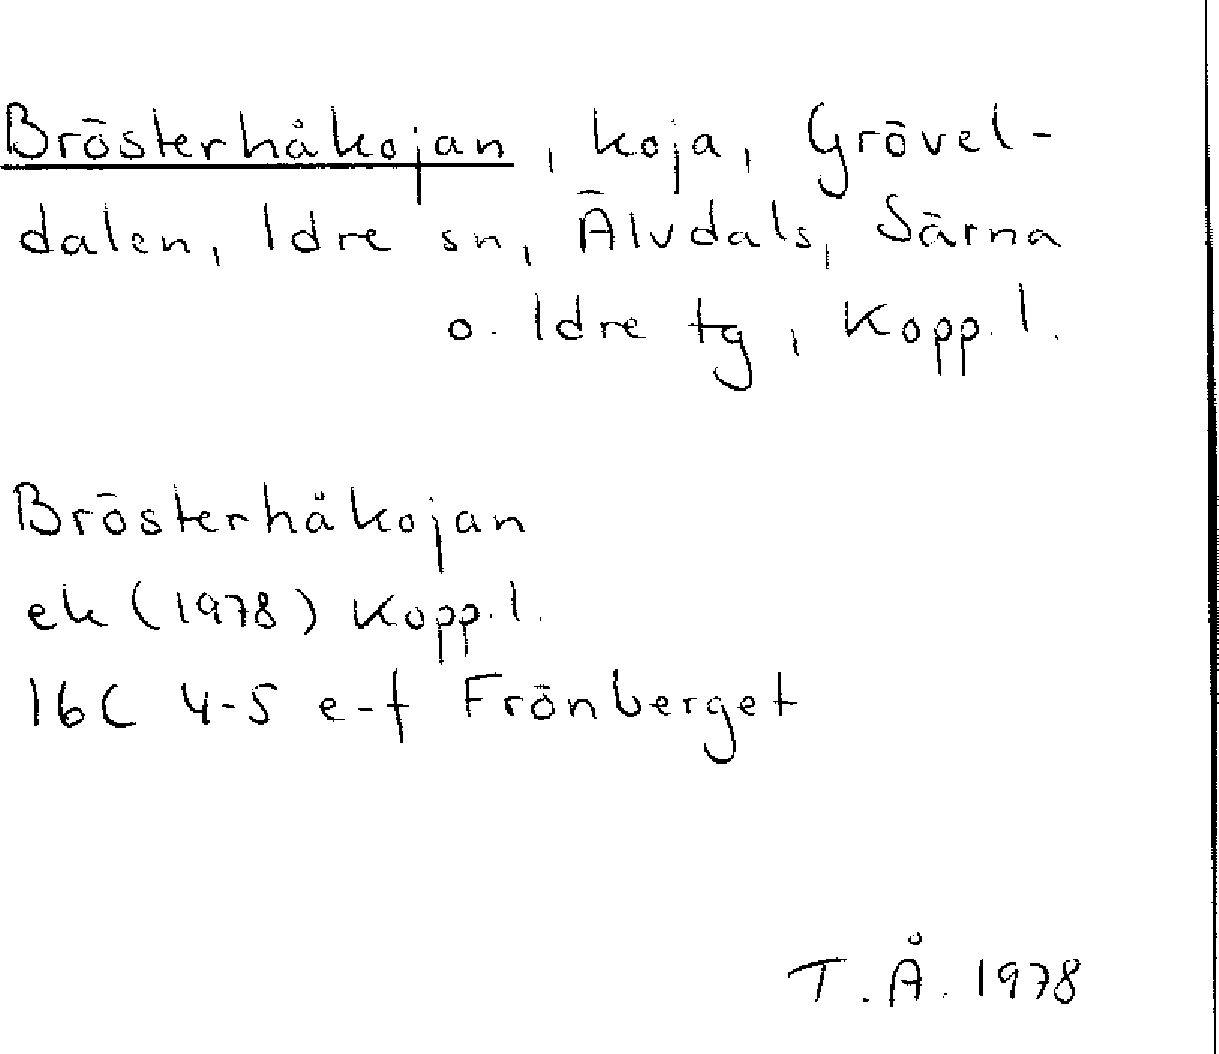 Brösterhåkojan, koja, Grövel-
dalen, Idre sn, Älvdals, Särna
o. Idre tg, Kopp. l.
Brösterhåkojan
ek (1978) Kopp. l.
16C 4-5 e-f Frönberget
T. Å. 1978